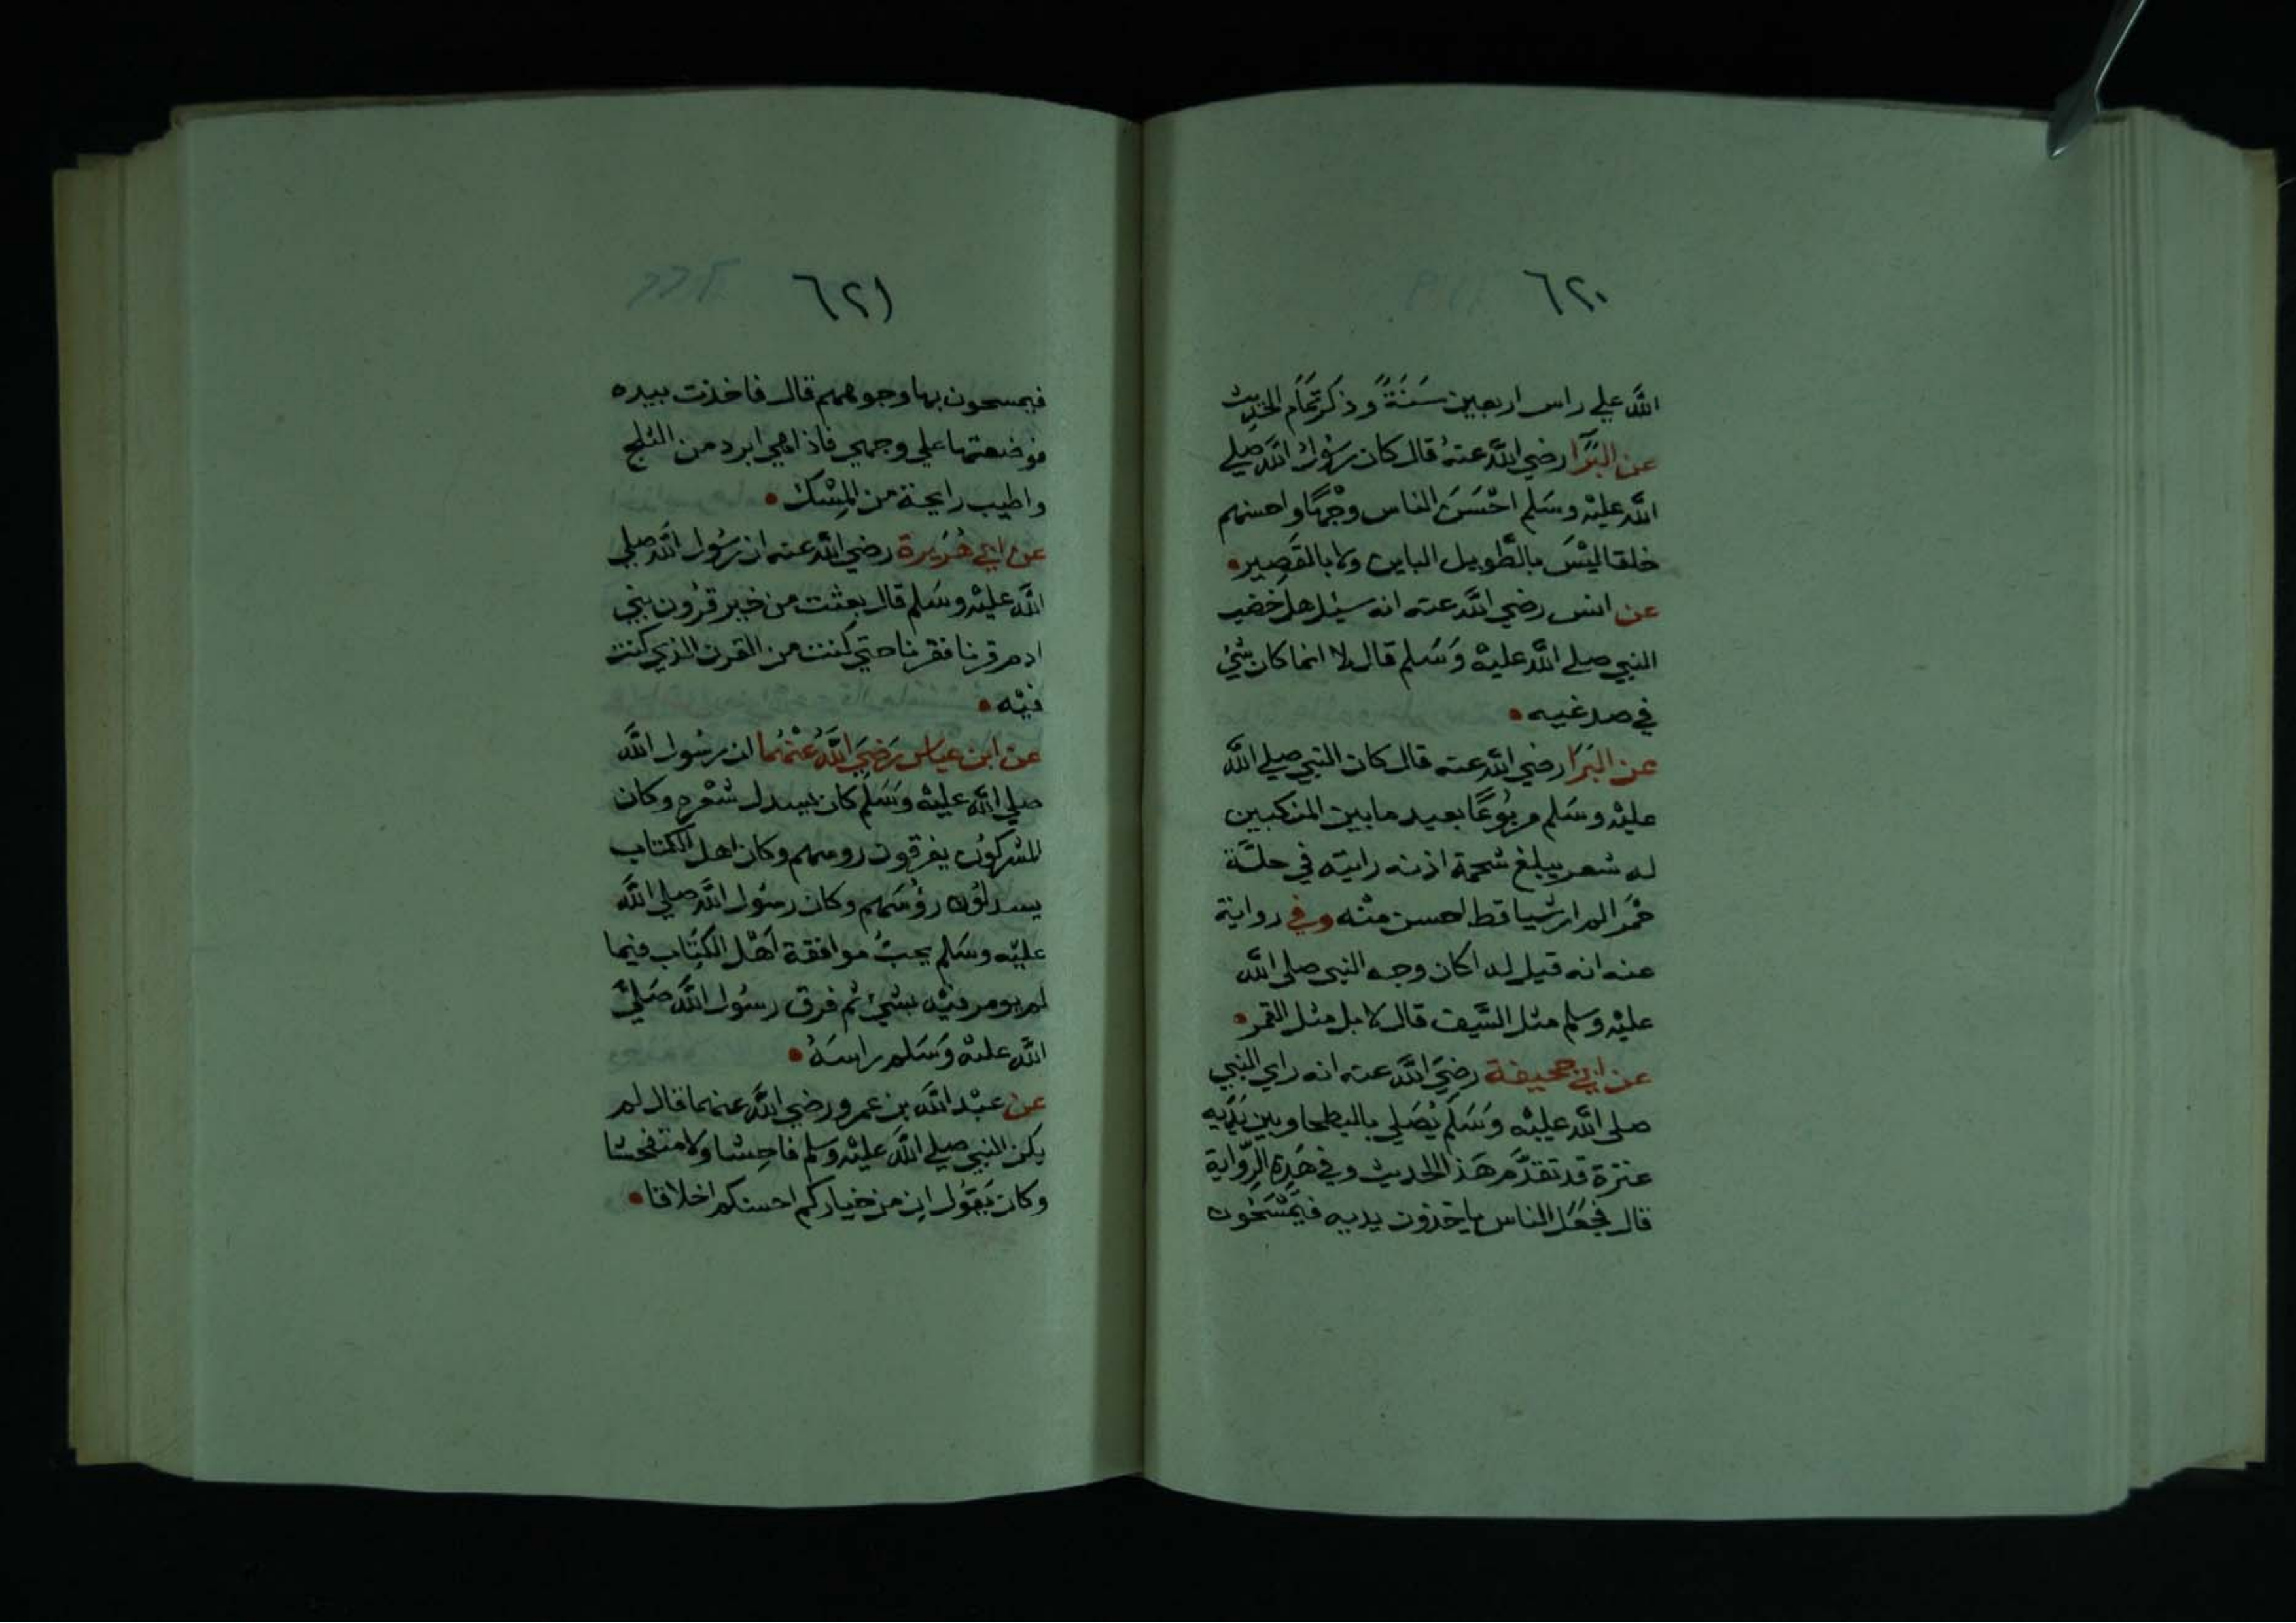 ٦٢٠
الله علي راس اربعين سَنَةً وذكر تمَام الحديث
عن البَرَا رضي الله عنهُ قال كان رسُول الله صلي
الله عليْه وسَلم احْسَنَ الناس وجْهًا واحسنهم
خلقا ليْسَ بالطَّويل الباين ولا بالقَصِير
عن انس رضي الله عنه انه سئِل هل خضب
النبي صلي الله عليْه وَسَلم قال لا انما كان شيْ
في صدغيه
عن البَرَا رضي الله عنه قال كان النبي صلي الله
عليْه وسَلم مربُوعًا بعيد مابين المنكبين
له شعر يبلغ شحمة اذنه رايته في حلَّة
حمْرَا لم ار شيا قط احسن منْه وفي رواية
عنه انه قيل له اكان وجه النبي صلي الله
عليْه وسلم مثل السَّيف قال لا بل مثل القمر
عن ابي جحيفة رضِيَ الله عنه انه راي النبي
صلي الله عليْه وَسَلم يُصَلي بالبطحا وبين يَدَيه
عنزة قد تقدَّم هَذا الحديث وفي هَذِه الرِّواية
قال فجَعَل الناس ياخذون يديه فيَمْسَحُون
٦٢١
فيمسحون بها وجوههم قال فاخذت بيده
فوضعتها علي وجهي فاذا هي ابرد من الثلج
واطيب رايحة من المِسْك
عن ابي هُرَيرة رضي الله عنه ان رسُول الله صلي
الله عليْه وسَلم قال بعثت من خير قرُون بني
ادم قرنا فقرنا حتي كنت من القرن الذي كنت
فيْه
عن ابن عباس رَضِيَ اللهُ عنْهُما ان رسُول الله
صلي الله عليْه وسَلم كان يسدل شعْره وكان
المشركوُن يفرقون روسهم وكان اهل الكتاب
يسدلوُن رؤُسَهم وكان رسُول الله صلي الله
عليْه وسَلم يحبُّ موافقة اهْل الكِتَاب فيما
لم يومر فيْه بشيْ ثم فرق رسُول الله صَلي
الله عليْه وَسَلم راسَهُ
عن عبْد الله بن عمرو رضي الله عنهما قال لم
يكن النبي صلي الله عليْه وسلم فاحِشا ولا متفحشا
وكان يَقوُل ان من خياركم احسنكم اخلاقا